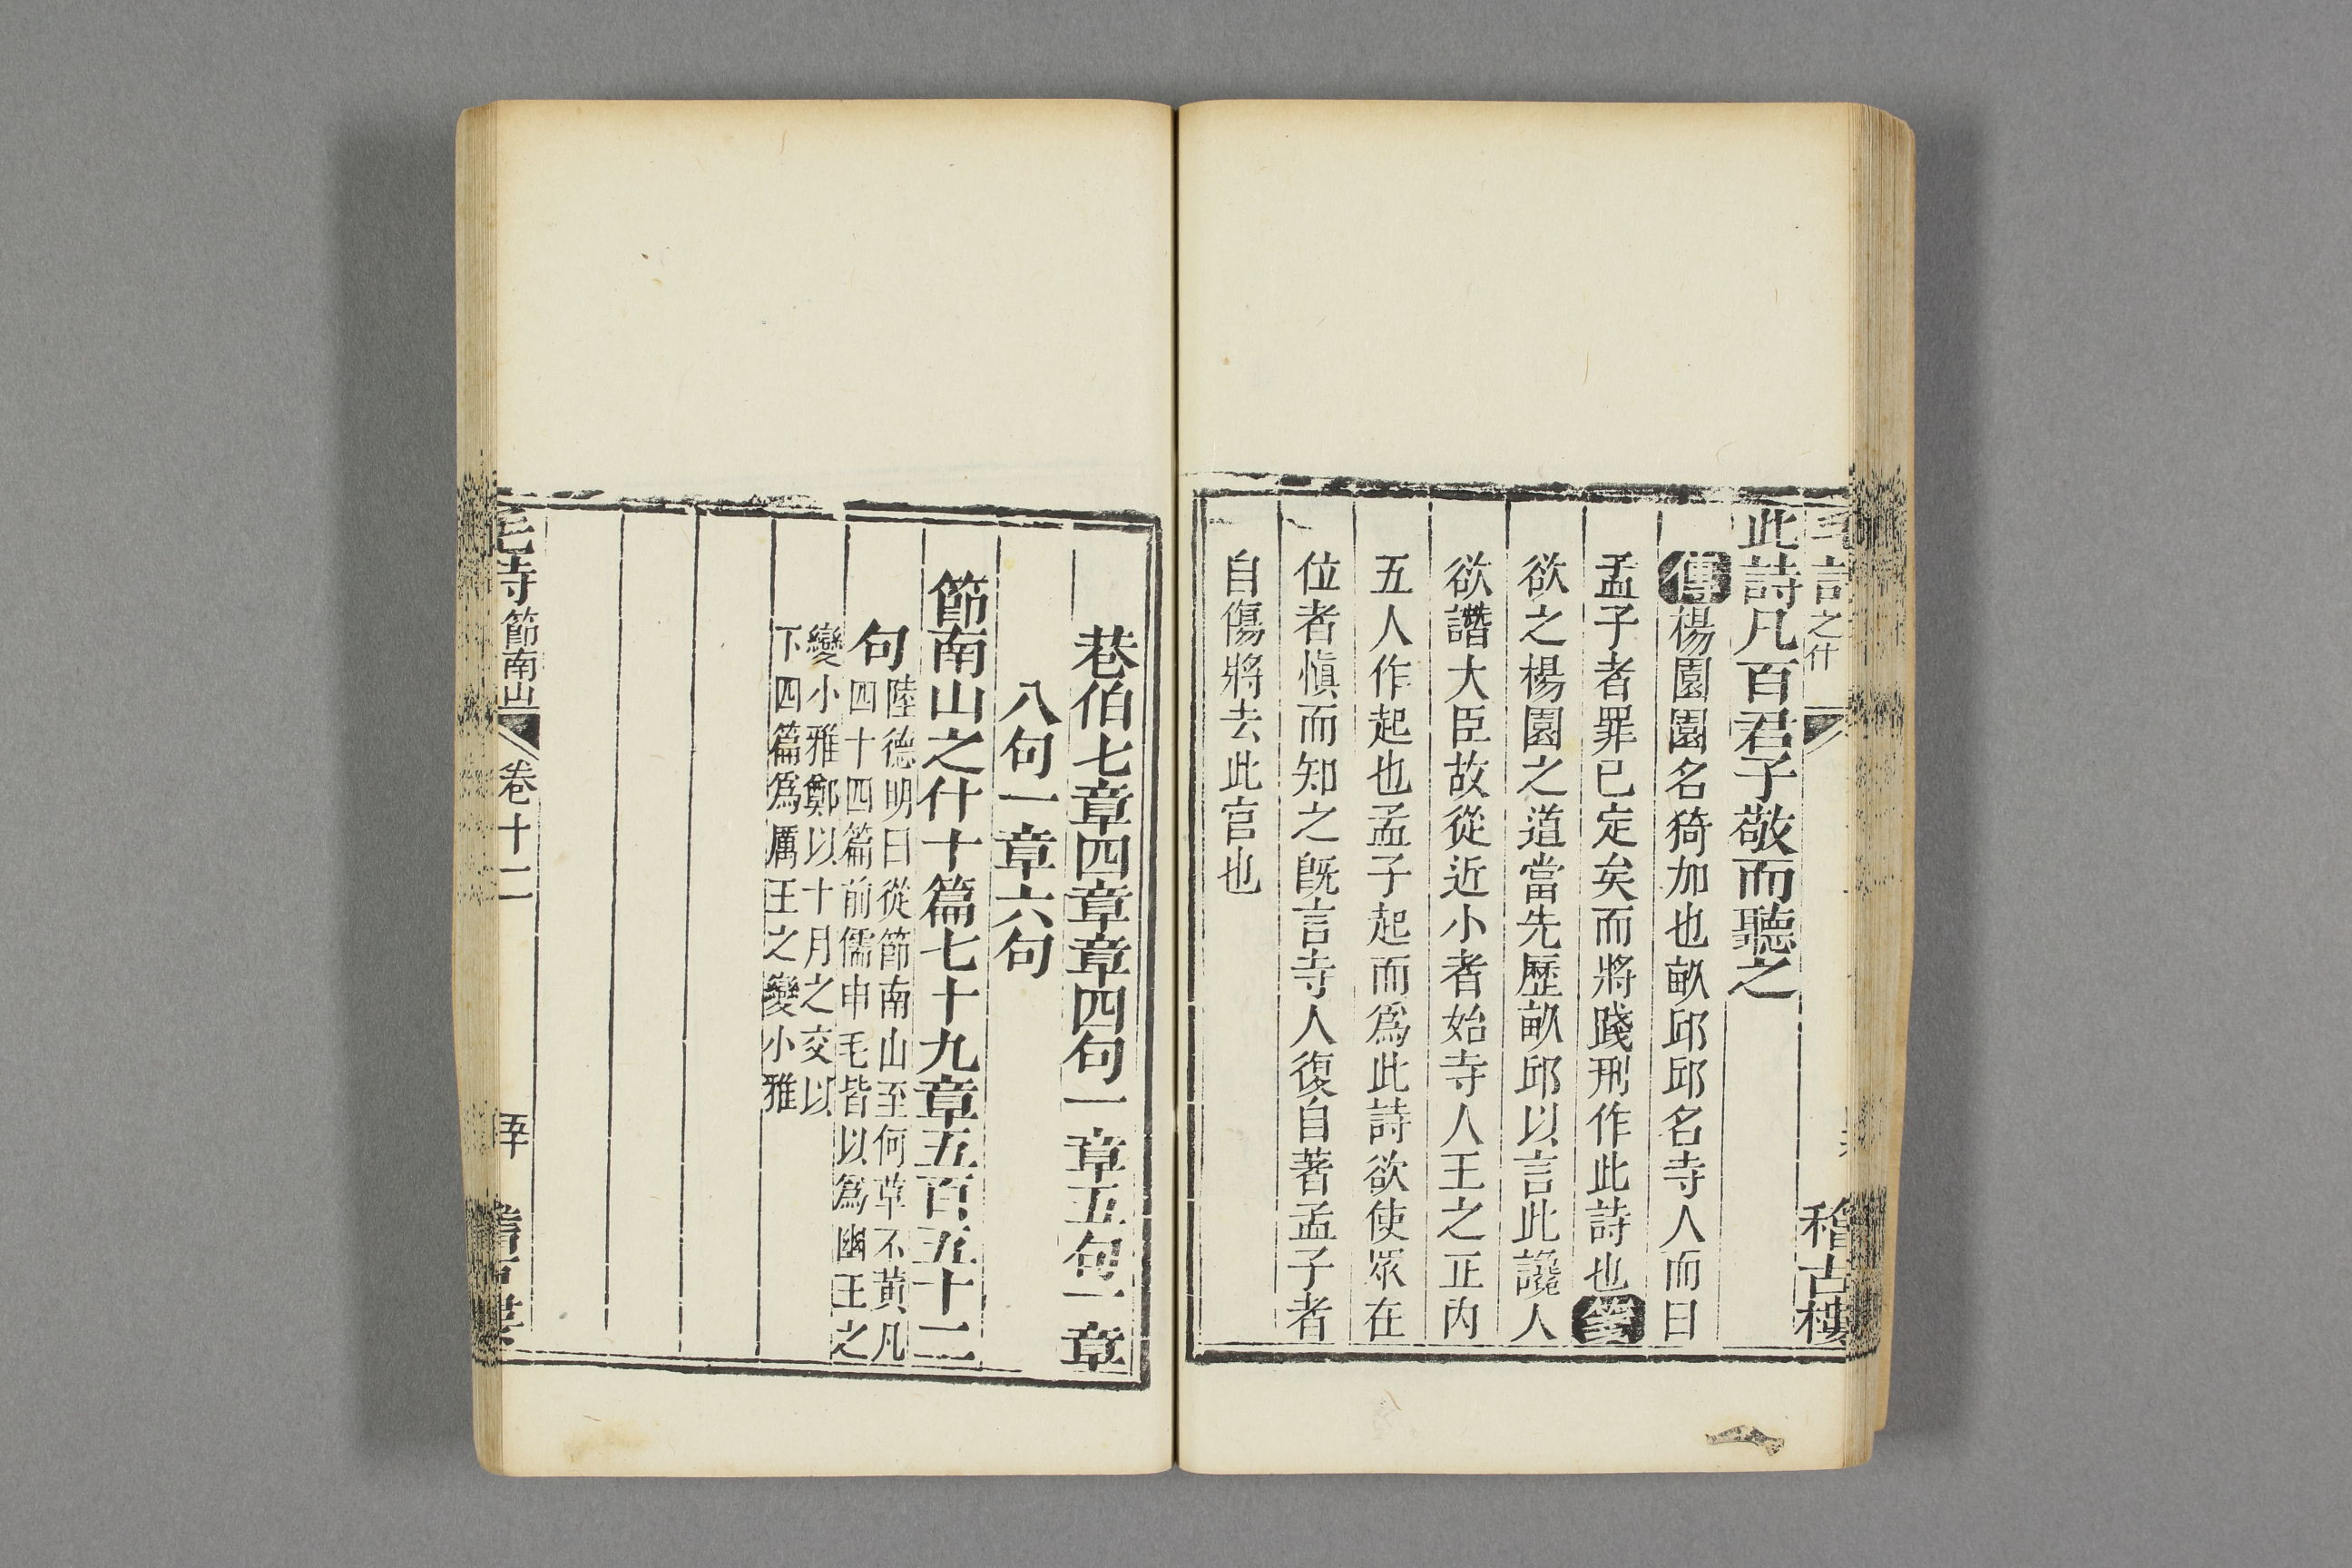 之什
稽古樓
此詩凡百君子敬而聽之
傳楊園園名猗加也畝邱邱名寺人而曰
孟子者罪已定矣而將踐刑作此詩也箋
欲之楊園之道當先歷畝邱以言此讒人
欲譖大臣故從近小者始寺人王之正內
五人作起也孟子起而爲此詩欲使眾在
位者愼而知之旣言寺人復自著孟子者
自傷將去此官也
巷伯七章四章章四句一章五句一章
八句一章六句
節南山之什十篇七十九章五百五十二
句
陸德明曰從節南山至何草不黃凡
四十四篇前儒申毛皆以爲幽王之
變小雅鄭以十月之交以
下四篇爲厲王之變小雅
節南山 卷十二